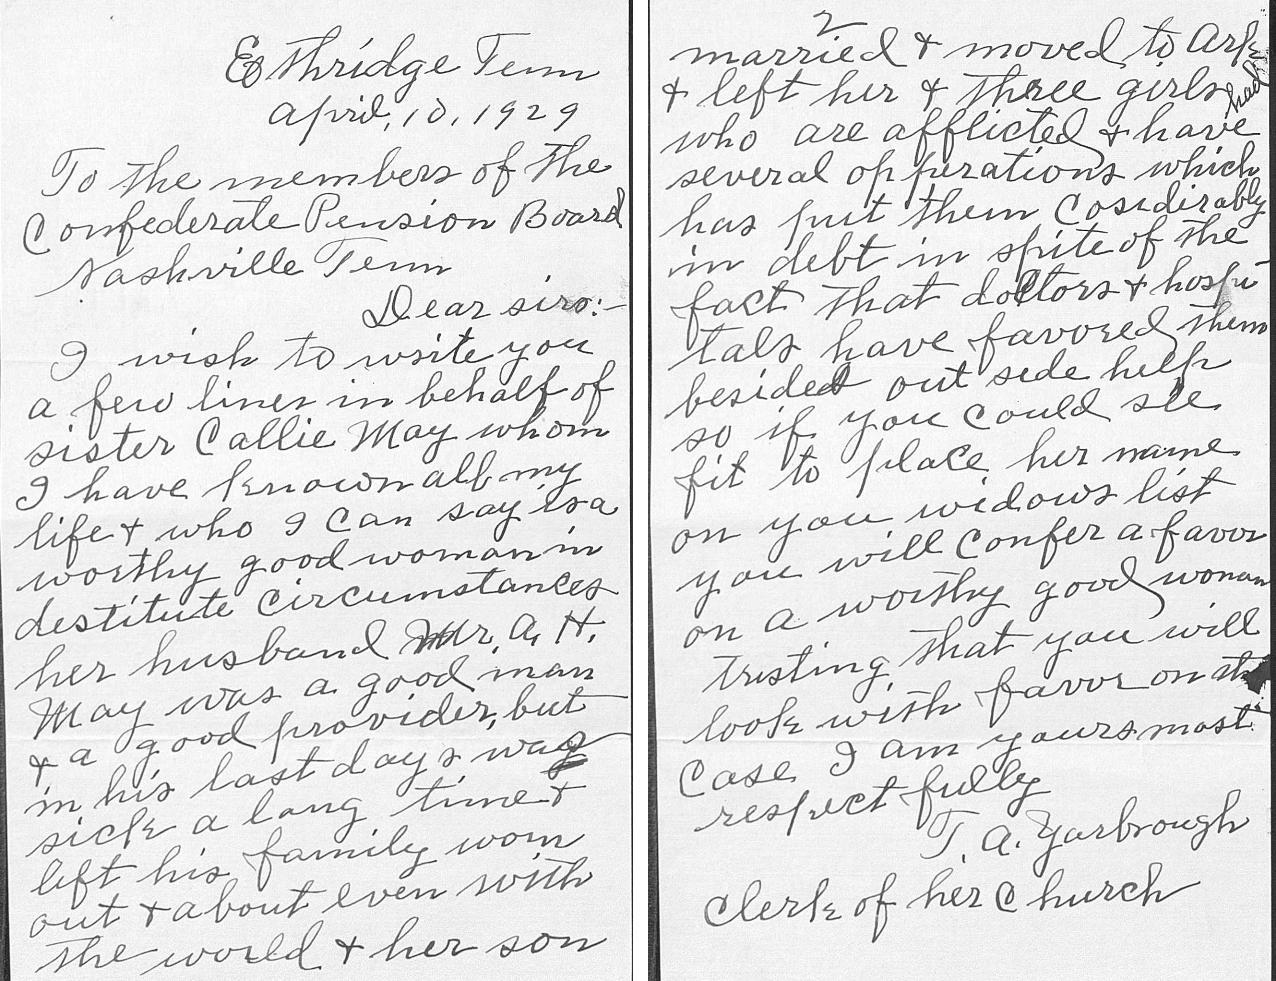 Ethridge Tenn
April, 10, 1929
To the members of the
Confederate Pension Board
Nashville Tenn
Dear sirs:-
I wish to write you
a few lines in behalf of
sister Callie May whom
I have known all my
life & who I can say is a
worthy good woman in
destitute circumstances
her husband Mr. A. H.
May was a good man
& a good provider, but
in his last days was
sick a long time &
left his family worn
out & about even with
the world & her son
2
married & moved to Ark
& left her & three girls
who are afflicted & have had
several opperations which
has put them Cosidirably
in debt in spite of the
fact that doctors & hospi
tals have favored them
besided out side help
so if you could see
fit to place her name
on you widows list
you will confer a favor
on a worthy good woman
trsting that you will
look with favor on th
Case I am yours most
respectfully
T. A. Yarbrough
Clerk of her Church